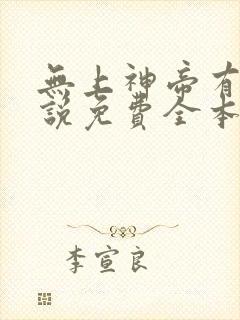 無上神帝有
說免費全本
李宣良